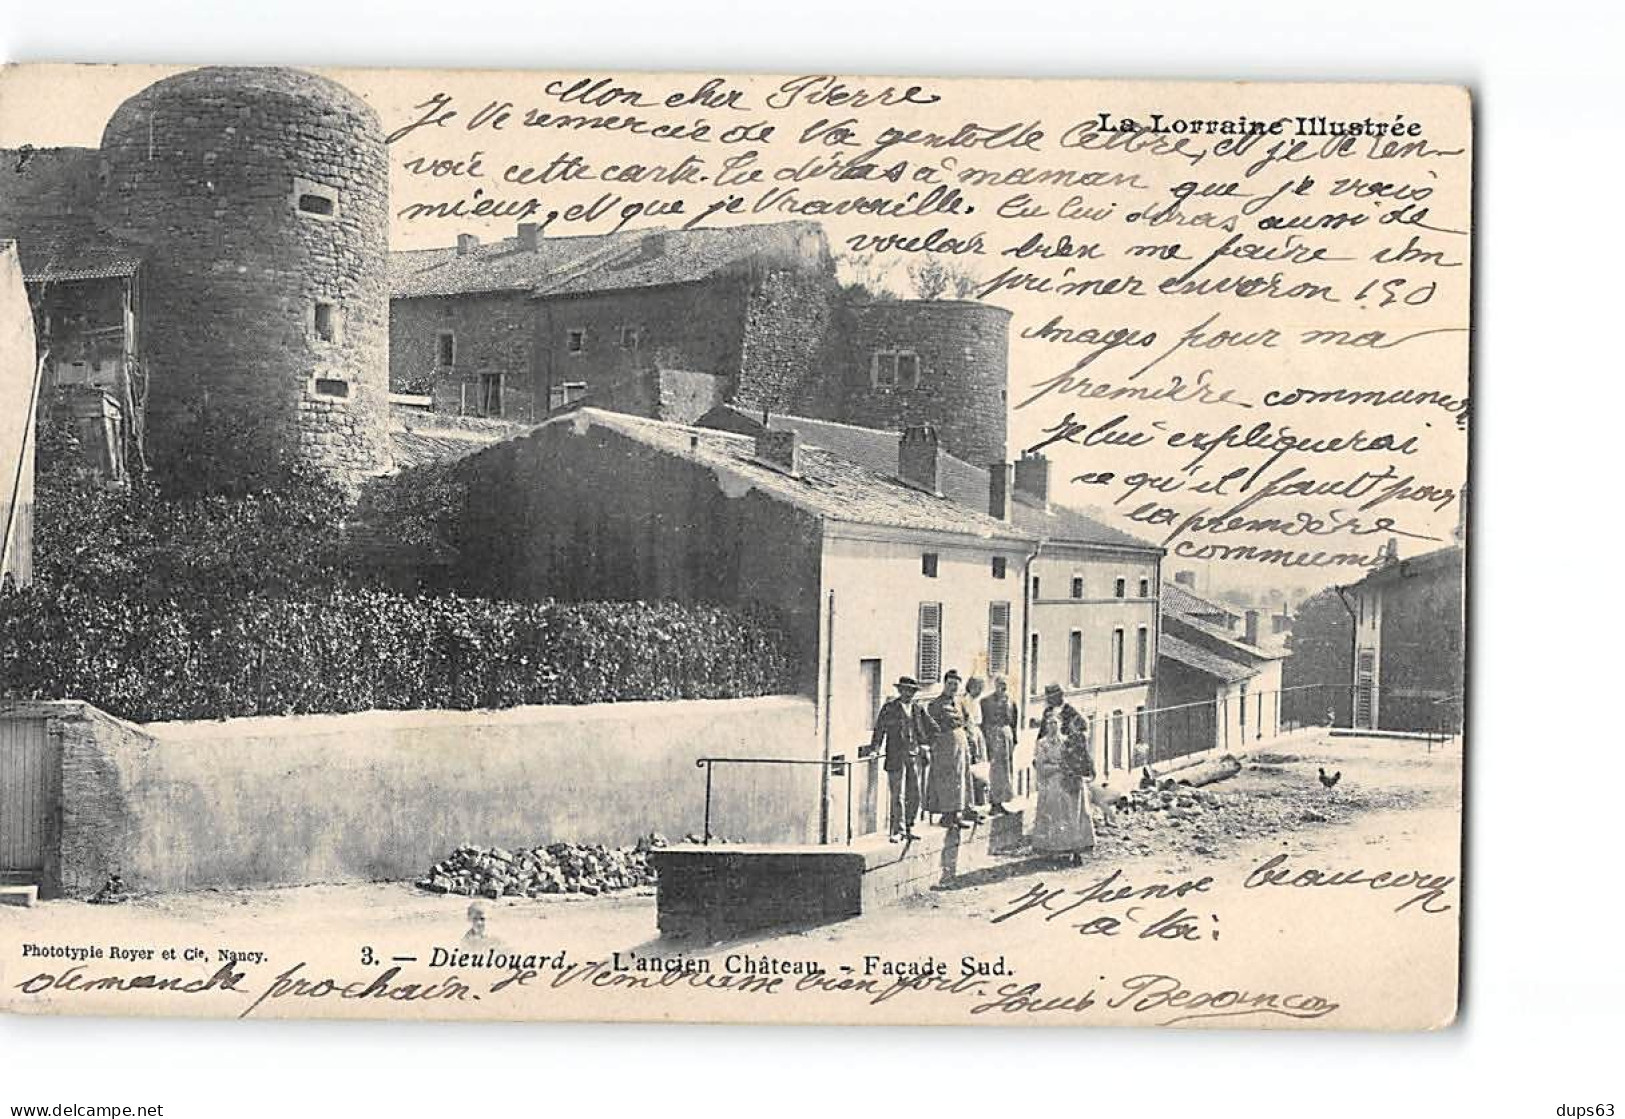 Mon cher Pierre
La Lorraine Illustrée
Je te remercie de ta gentille lettre, et je t'en-
voie cette carte. Tu diras à maman que je vais
mieux, et que je travaille. Tu lui diras aussi de
vouloir bien me faire im
primer environ 150
images pour ma
première communion
Je lui expliquerai
ce qu'il faut pour
la première
communi
Je pense beaucoup
à toi.
Phototypie Royer et Cie, Nancy.
3. — Dieulouard. - L'ancien Château. - Façade Sud.
dimanche prochain. Je t'embrasse bien fort.
Louis Besançon
delcampe.net
dups63